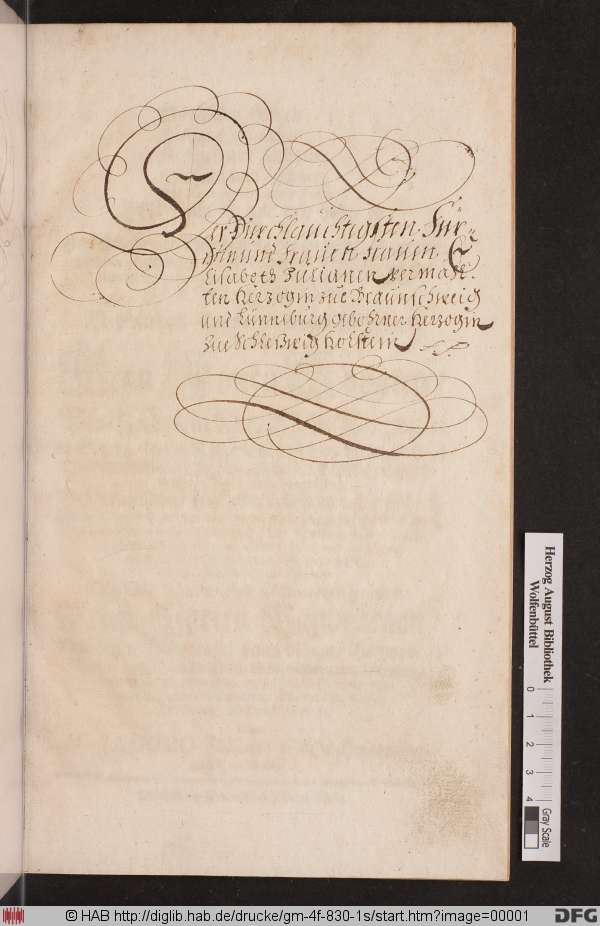 Der Durchlauchtigsten Für-
stin und Frauen Frauen E
lisabeth Julianen Vermähl-
ten Herzogin zue Braunschweig
und Lünneburg gebohrner Herzogin
zue Schleßwig Holstein
Herzog August Bibliothek
Wolfenbüttel
0 1 2 3 4
Gray Scale
© HAB http://diglib.hab.de/drucke/gm-4f-830-1s/start.htm?image=00001
DFG